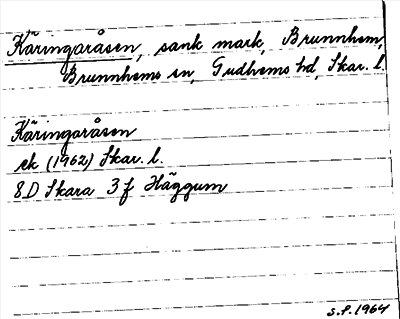 Käringaråsen, sank mark, Brunnhem,
Brunnhems sn, Gudhems hd, Skar. l.
Käringaråsen
ek (1962) Skar. l.
8D Skara 3f Häggum
S.P. 1964